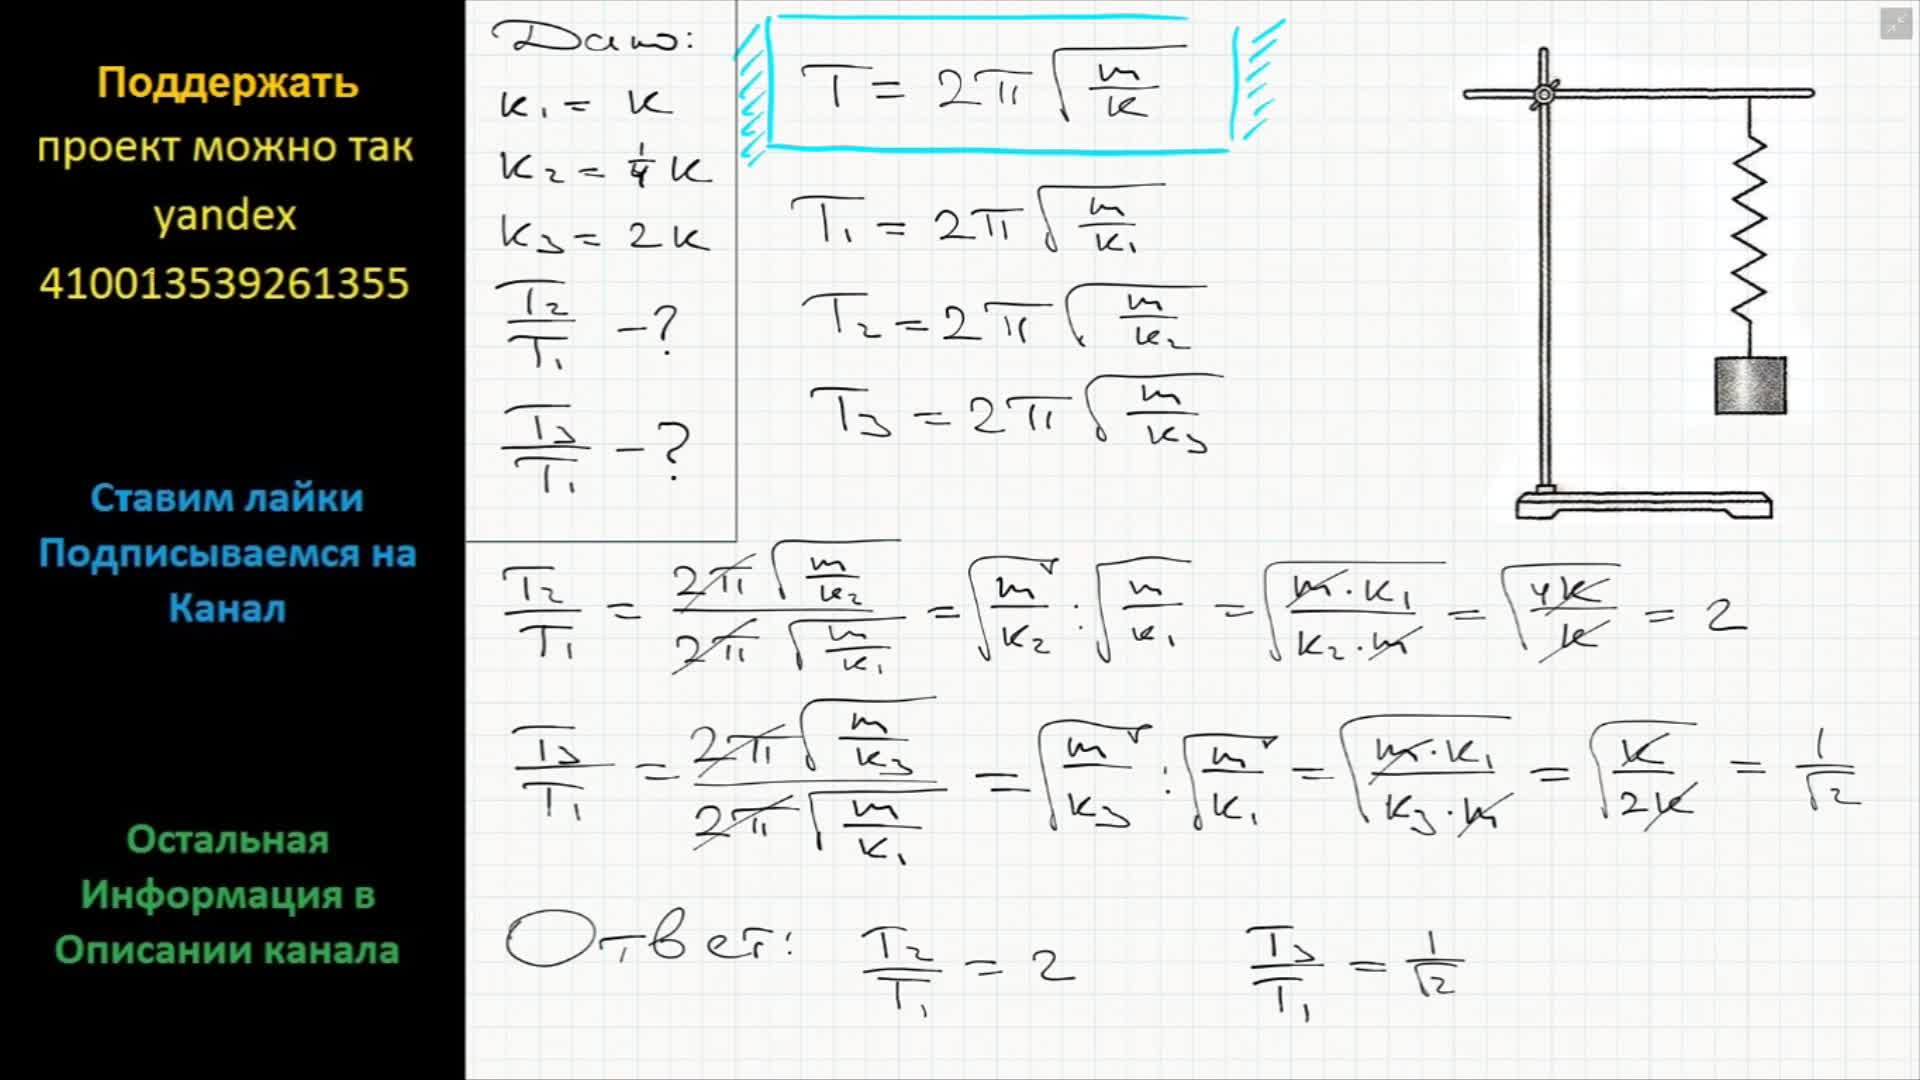 Поддержать
проект можно так
yandex
410013539261355
Ставим лайки
Подписываемся на
Канал
Остальная
Информация в
Описании канала
Дано:
K₁ = K
K₂ = 1/4 K
K₃ = 2K
T₂/T₁ – ?
T₃/T₁ – ?
T = 2π √(m/K)
T₁ = 2π √(m/K₁)
T₂ = 2π √(m/K₂)
T₃ = 2π √(m/K₃)
T₂/T₁ = 2π√(m/K₂) / 2π√(m/K₁) = √(m/K₂) : √(m/K₁) = √(m·K₁ / K₂·m) = √(4K/K) = 2
T₃/T₁ = 2π√(m/K₃) / 2π√(m/K₁) = √(m/K₃) : √(m/K₁) = √(m·K₁ / K₃·m) = √(K/2K) = 1/√2
Ответ: T₂/T₁ = 2 T₃/T₁ = 1/√2